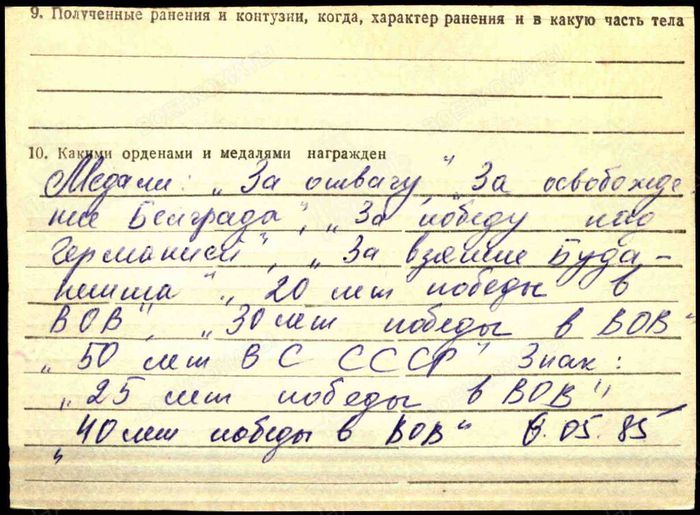 9. Полученные ранения и контузии, когда, характер ранения и в какую часть тела
10. Какими орденами и медалями награжден
Медали: „За отвагу", „За освобожде
ние Белграда", „За победу над
Германией", „За взятие Буда-
пешта" „20 лет победы в
ВОВ", „30 лет победы в ВОВ"
„50 лет ВС СССР" Знак:
„25 лет победы в ВОВ"
„40 лет победы в ВОВ" 05.85